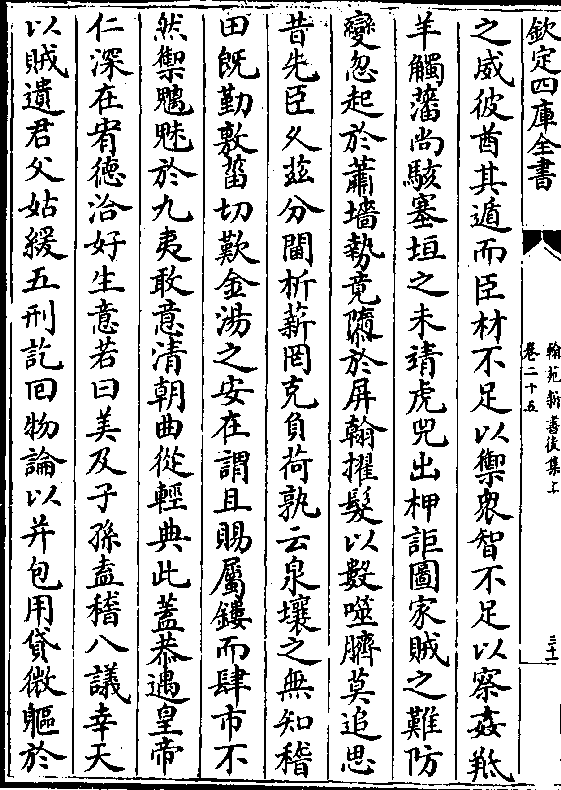 欽定四庫全書
翰苑新書後集上
卷二十五
三十一
之威彼酋其遁而臣材不足以禦衆智不足以察姦羝
羊觸藩尚駭塞垣之未靖虎兕出柙詎圖家賊之難防
變忽起於蕭墻勢竟隳於屏翰擢髮以數噬臍莫追思
昔先臣久兹分閫析薪罔克負荷孰云泉壤之無知稽
田既勤敷菑切歎金湯之安在謂且賜屬鏤而肆市不
然禦魑魅於九夷敢意清朝曲從輕典此蓋恭遇皇帝
仁深在宥德洽好生意若曰美及子孫盍稽八議幸天
以賊遺君父姑緩五刑訖回物論以并包用貸微軀於